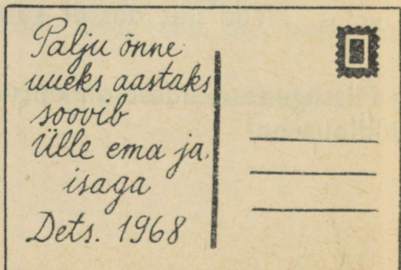 Palju õnne
uueks aastaks
soovib
Ülle ema ja
isaga
Dets. 1968